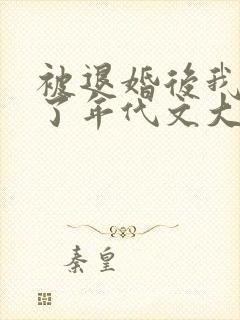 被退婚後我
了年代文大
秦皇